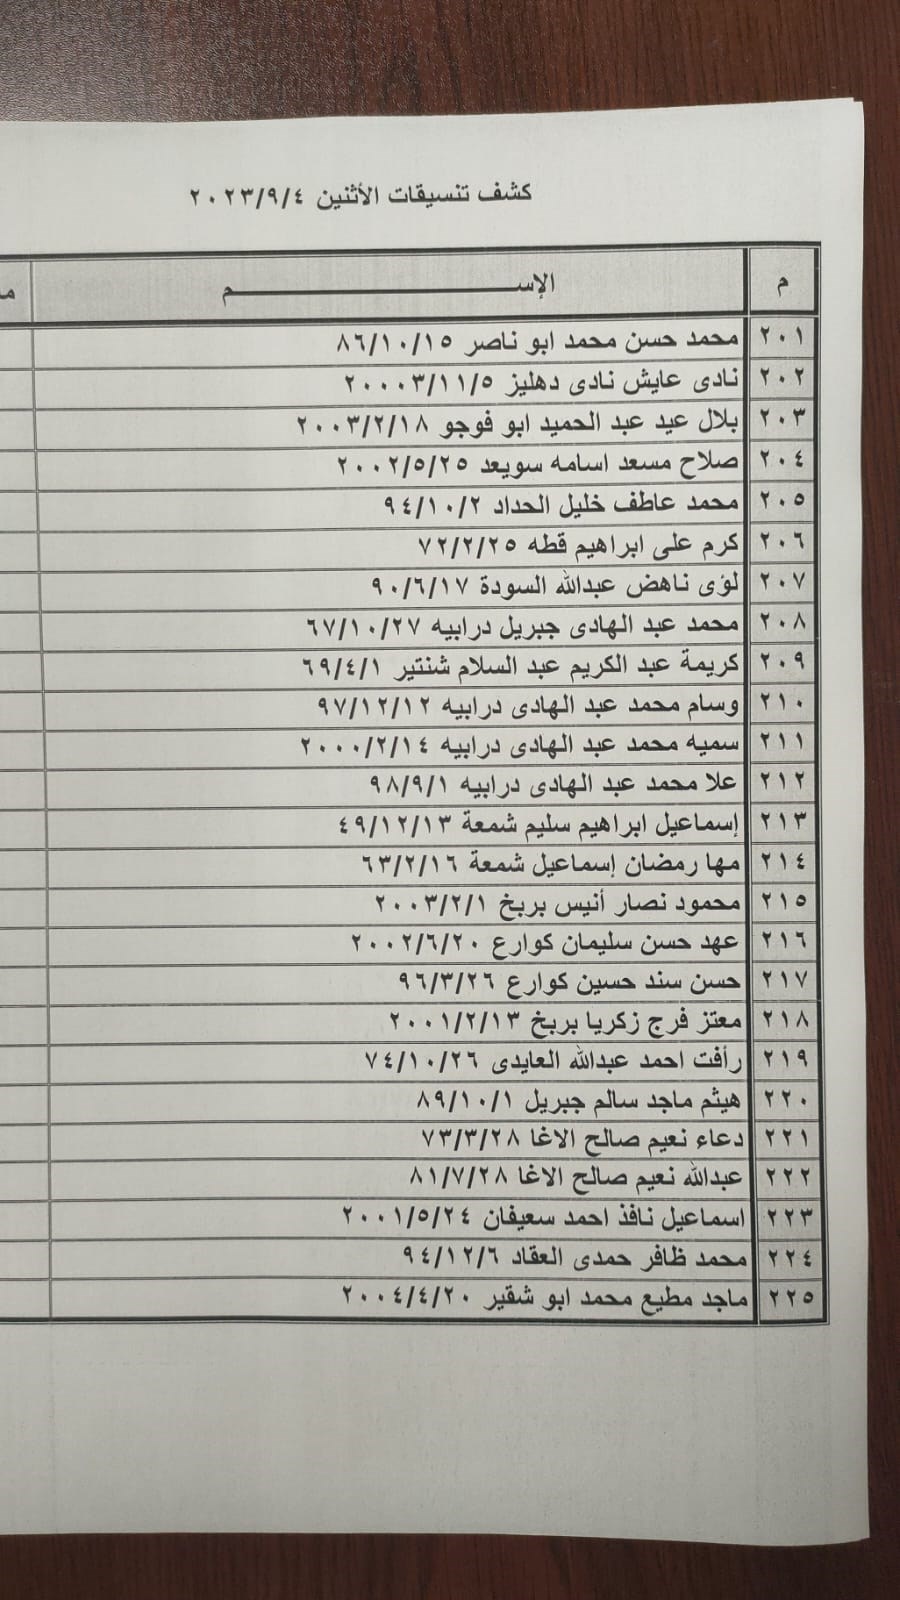 كشف تنسيقات الأثنين ٢٠٢٣/٩/٤
م الإســـــــــــــم
٢٠١ محمد حسن محمد ابو ناصر ٨٦/١٠/١٥
٢٠٢ نادى عايش نادى دهليز ٢٠٠٠٣/١١/٥
٢٠٣ بلال عيد عبد الحميد ابو فوجو ٢٠٠٣/٢/١٨
٢٠٤ صلاح مسعد اسامه سويعد ٢٠٠٢/٥/٢٥
٢٠٥ محمد عاطف خليل الحداد ٩٤/١٠/٢
٢٠٦ كرم على ابراهيم قطه ٧٢/٢/٢٥
٢٠٧ لؤى ناهض عبدالله السودة ٩٠/٦/١٧
٢٠٨ محمد عبد الهادى جبريل درابيه ٦٧/١٠/٢٧
٢٠٩ كريمة عبد الكريم عبد السلام شنتير ٦٩/٤/١
٢١٠ وسام محمد عبد الهادى درابيه ٩٧/١٢/١٢
٢١١ سميه محمد عبد الهادى درابيه ٢٠٠٠/٢/١٤
٢١٢ علا محمد عبد الهادى درابيه ٩٨/٩/١
٢١٣ إسماعيل ابراهيم سليم شمعة ٤٩/١٢/١٣
٢١٤ مها رمضان إسماعيل شمعة ٦٣/٢/١٦
٢١٥ محمود نصار أنيس بربخ ٢٠٠٣/٢/١
٢١٦ عهد حسن سليمان كوارع ٢٠٠٢/٦/٢٠
٢١٧ حسن سند حسين كوارع ٩٦/٣/٢٦
٢١٨ معتز فرج زكريا بربخ ٢٠٠١/٢/١٣
٢١٩ رأفت احمد عبدالله العايدى ٧٤/١٠/٢٦
٢٢٠ هيثم ماجد سالم جبريل ٨٩/١٠/١
٢٢١ دعاء نعيم صالح الاغا ٧٣/٣/٢٨
٢٢٢ عبدالله نعيم صالح الاغا ٨١/٧/٢٨
٢٢٣ اسماعيل نافذ احمد سعيفان ٢٠٠١/٥/٢٤
٢٢٤ محمد ظافر حمدى العقاد ٩٤/١٢/٦
٢٢٥ ماجد مطيع محمد ابو شقير ٢٠٠٤/٤/٢٠